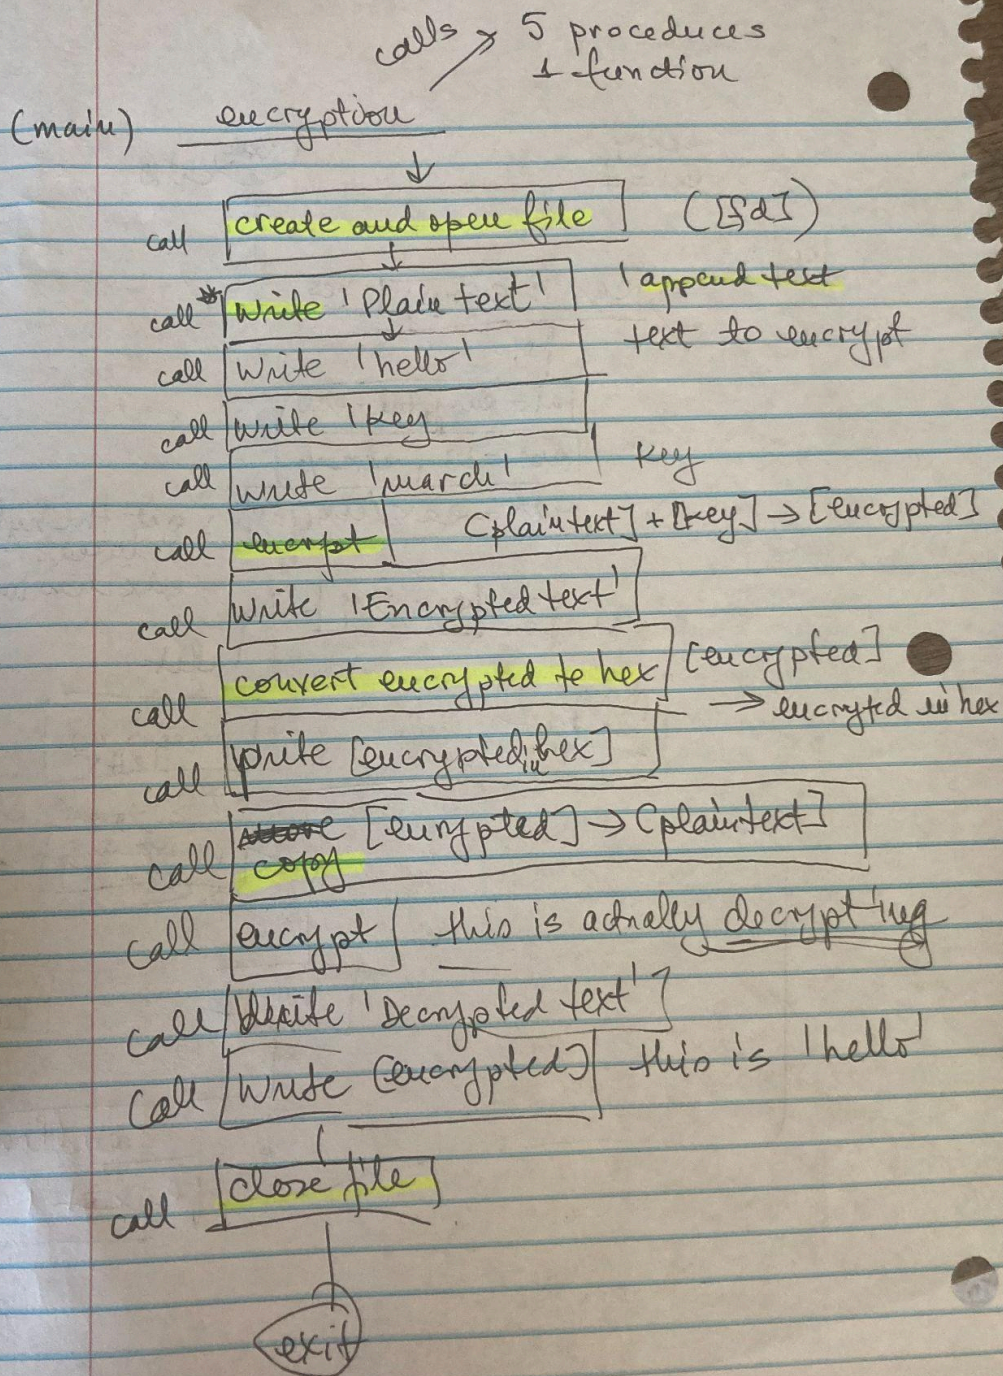 calls → 5 procedures
1 function
(main) encryption
call create and open file ([fd])
call * write 'Plain text' 'append text
call write 'hello' text to encrypt
call write 'key
call write 'march' key
call encrypt [plaintext] + [key] → [encrypted]
call write 'Encrypted text'
call convert encrypted to hex [encrypted]
→ encryted in hex
call write [encrypted in hex]
call copy [encrypted] → [plaintext]
call encrypt this is actually decrypting
call write 'Decrypted text'
call write [encrypted] this is 'hello'
call close file
exit